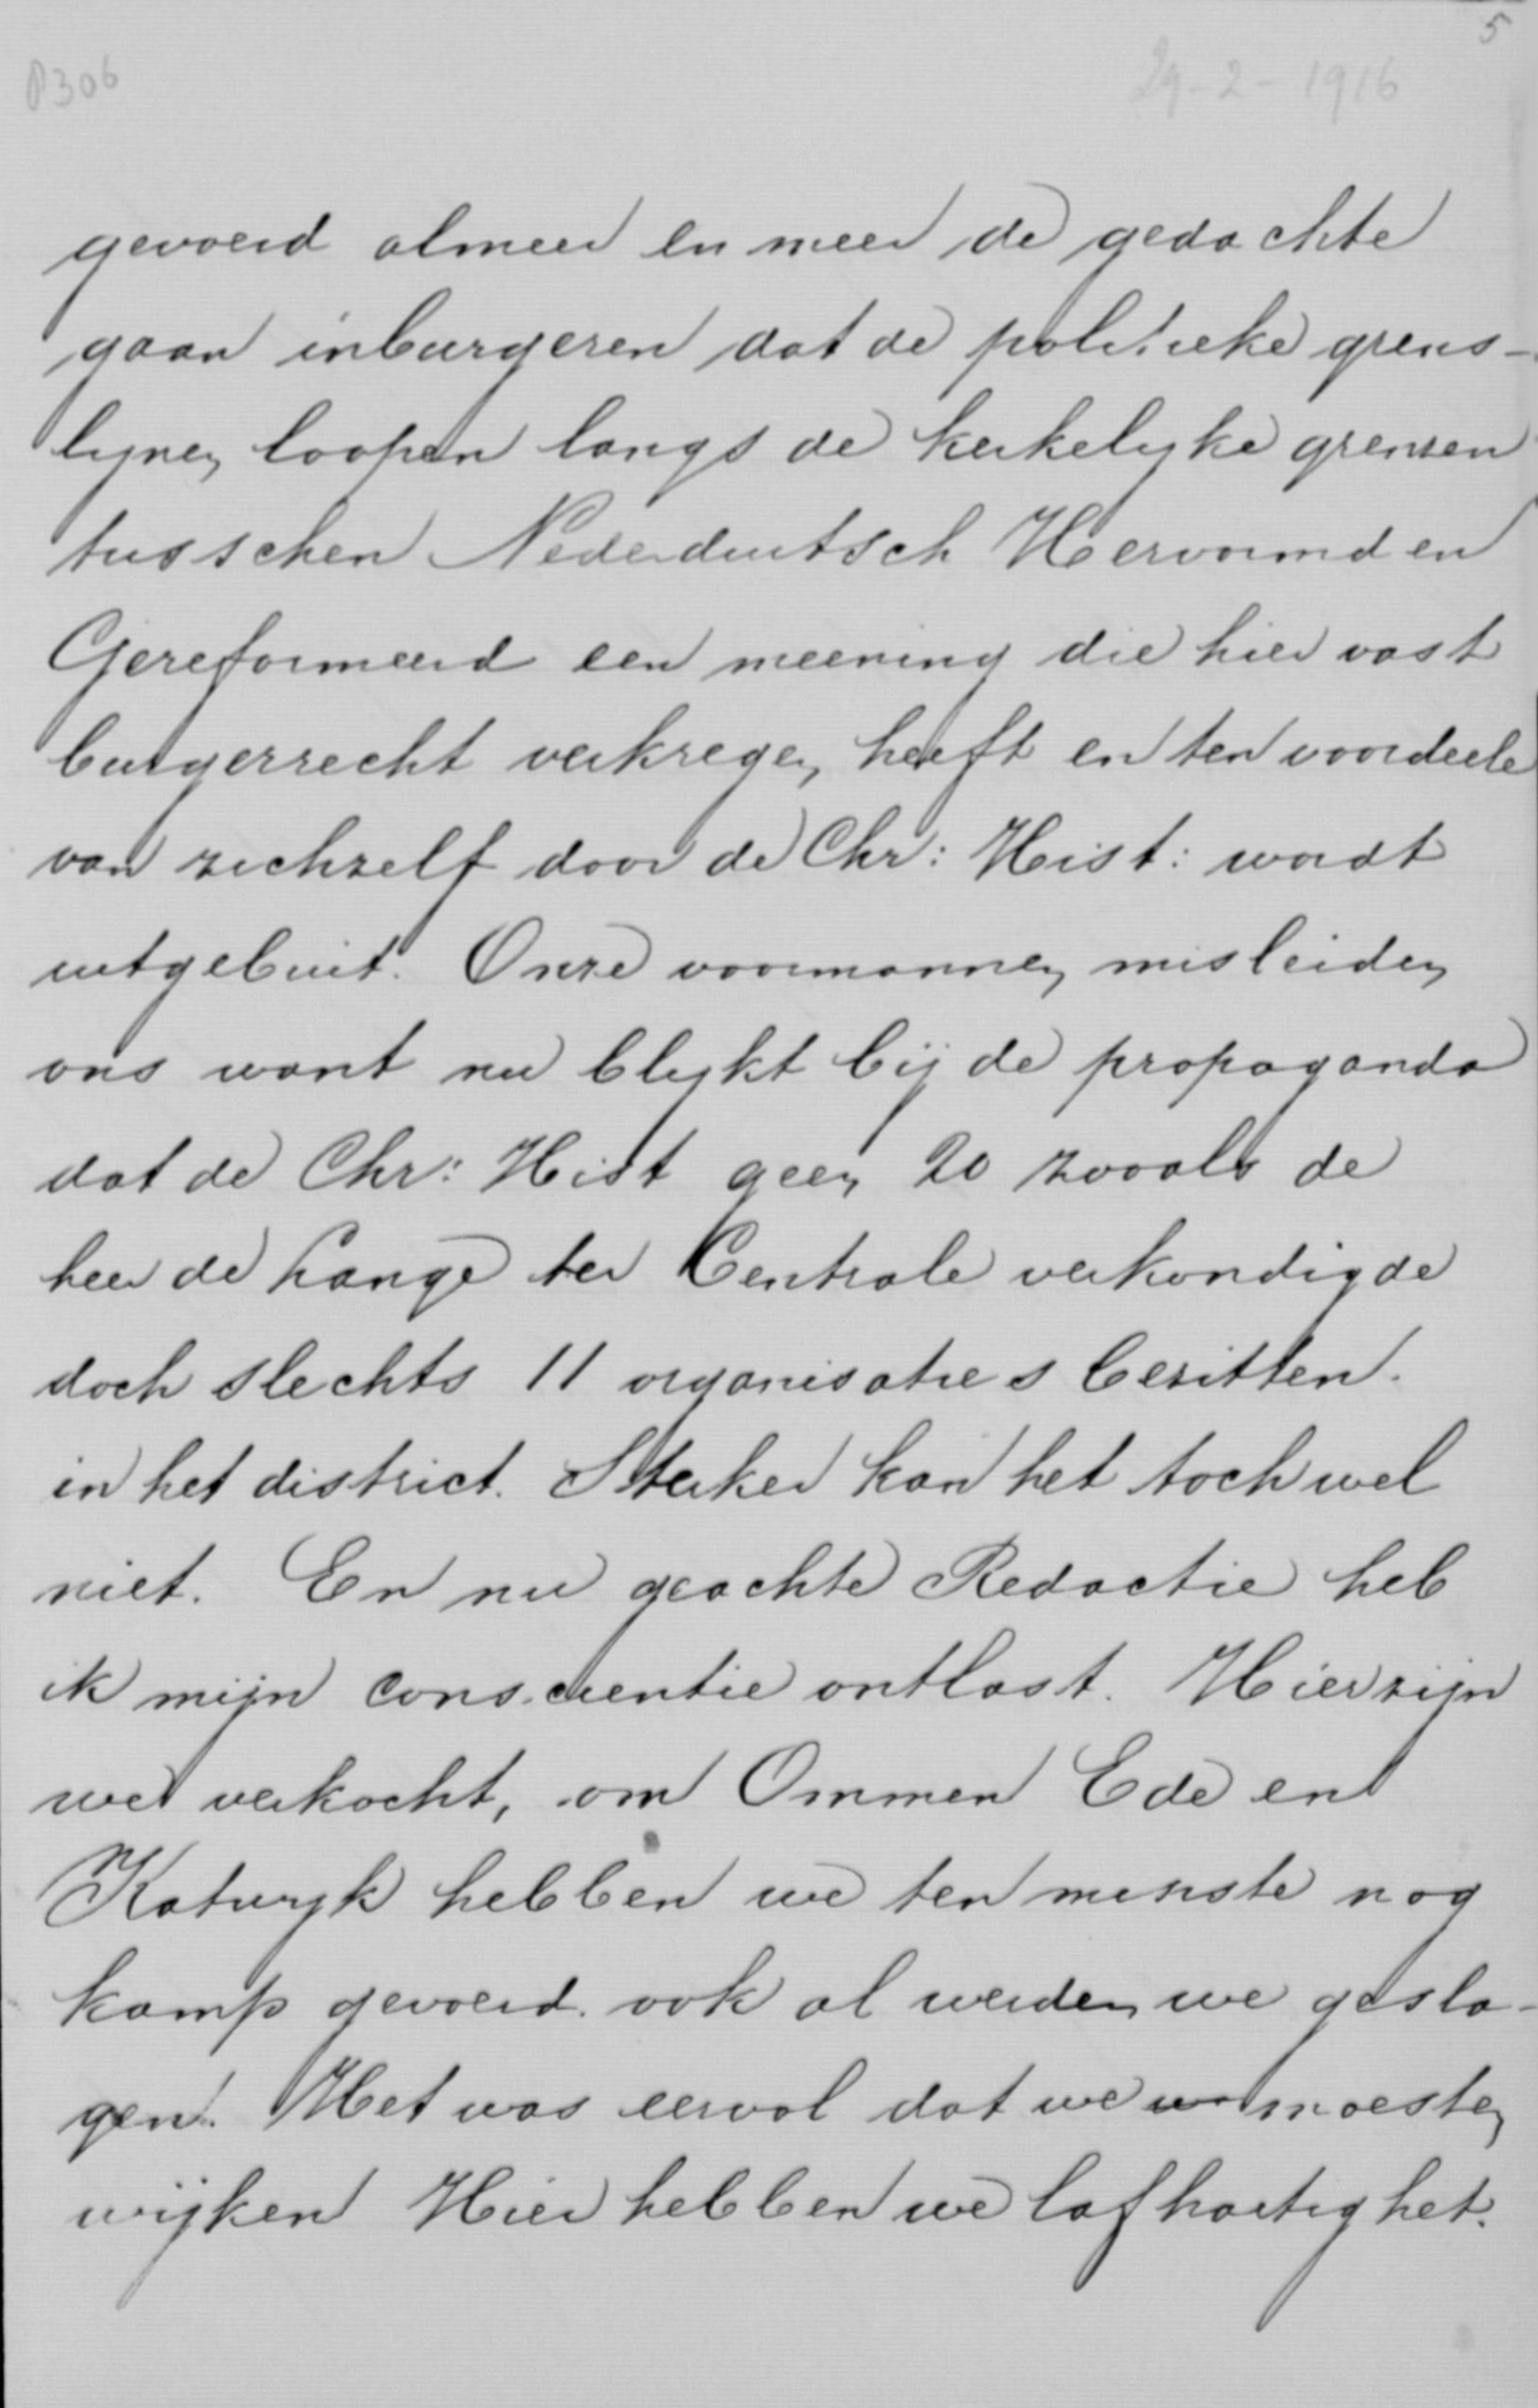 5
P306
29-2-1916
gevoerd almeer en meer de gedachte
gaan inburgeren dat de politieke grens-
lynen loopen langs de kerkelyke grenzen
tusschen Nederduitsch Hervormd en
Gereformeerd een meening die hier vast
burgerrecht verkregen heeft en ten voordeele
van zichzelf door de Chr: Hist: wordt
uitgebuit. Onze voormannen misleiden
ons want nu blykt bij de propaganda
dat de Chr: Hist geen 20 zooals de
heer de Lange ter Centrale verkondigde
doch slechts 11 organisaties bezitten.
in het district. Sterker kan het toch wel
niet. En nu geachte Redactie heb
ik mijn consciëntie ontlast. Hier zijn
we verkocht, om Ommen Ede en
Katwyk hebben we ten minste nog
kamp gevoerd. ook al werden we gesla-
gen. Het was eervol dat we moesten
wijken Hier hebben we lafhartig het.